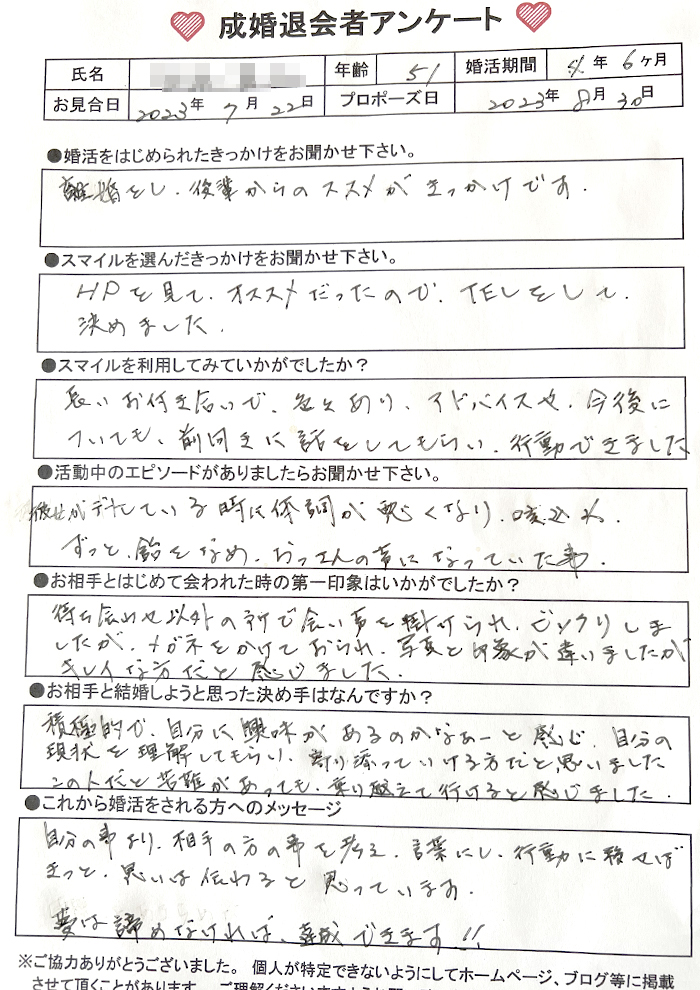 成婚退会者アンケート
氏名 年齢 51 婚活期間 4年 6ヶ月
お見合日 2023年 7月 22日 プロポーズ日 2023年 8月 30日
●婚活をはじめられたきっかけをお聞かせ下さい。
離婚をし、後輩からのススメがきっかけです。
●スマイルを選んだきっかけをお聞かせ下さい。
HPを見て、オススメだったので、TELをして、
決めました。
●スマイルを利用してみていかがでしたか？
長いお付き合いで、色々あり、アドバイスや、今後に
ついても、前向きに話をしてもらい、行動できました
●活動中のエピソードがありましたらお聞かせ下さい。
彼女がデートしている時に体調が悪くなり、咳込み、
ずっと、飴をなめ、おっさんの声になっていた事。
●お相手とはじめて会われた時の第一印象はいかがでしたか？
待ち合わせ以外の所で会い声を掛けられ、ビックリしま
したが、メガネをかけておられ、写真と印象が違いましたが
キレイな方だと感じました。
●お相手と結婚しようと思った決め手はなんですか？
積極的で、自分に興味があるのかなぁーと感じ、自分の
現状を理解してもらい、寄り添っていける方だと思いました
この人だと苦難があっても、乗り越えて行けると感じました。
●これから婚活をされる方へのメッセージ
自分の事より、相手の方の事を考え、言葉にし、行動に移せば
きっと、思いは伝わると思っています。
夢は諦めなければ、達成できます!!
※ご協力ありがとうございました。個人が特定できないようにしてホームページ、ブログ等に掲載
させて頂くことがあります。